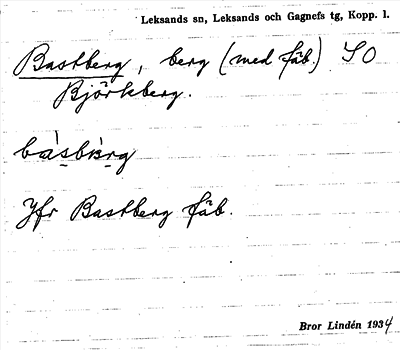 Leksands sn, Leksands och Gagnefs tg, Kopp. l.
Bastberg, berg (med fäb.) SO
Björkberg.
Jfr Bastberg fäb.
Bror Lindén 1934